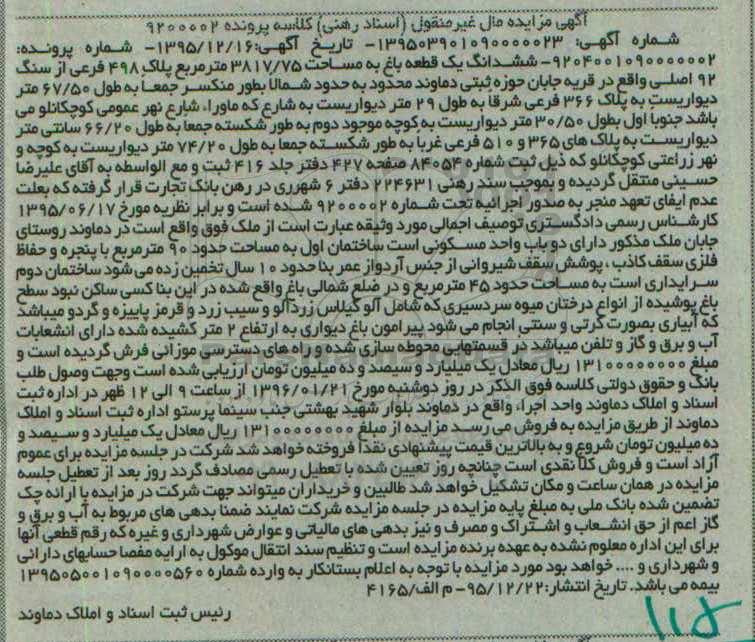 آگهی مزایده مال غیرمنقول (اسناد رهنی) کلاسه پرونده ۹۲۰۰۰۰۲
شماره آگهی: ۱۳۹۵۰۳۹۰۱۰۹۰۰۰۰۰۲۳- تاریخ آگهی:۱۳۹۵/۱۲/۱۶- شماره پرونده:
۹۲۰۴۰۰۱۰۹۰۰۰۰۰۰۲- ششدانگ یک قطعه باغ به مساحت ۳۸۱۷/۷۵ مترمربع پلاک ۴۹۸ فرعی از سنگ
۹۲ اصلی واقع در قریه جابان حوزه ثبتی دماوند محدود به حدود شمالا بطور منکسر جمعا به طول ۶۷/۵۰ متر
دیواریست به پلاک ۳۶۶ فرعی شرقا به طول ۲۹ متر دیواریست به شارع که ماوراء شارع نهر عمومی کوچکانلو می
باشد جنوبا اول بطول ۳۰/۵۰ متر دیواریست به کوچه موجود دوم به طور شکسته جمعا به طول ۶۶/۲۰ سانتی متر
دیواریست به پلاک های ۳۶۵ و ۵۱۰ فرعی غربا به طور شکسته جمعا به طول ۷۴/۲۰ متر دیواریست به کوچه و
نهر زراعتی کوچکانلو که ذیل ثبت شماره ۸۴۰۵۴ صفحه ۴۲۷ دفتر جلد ۴۱۶ ثبت و مع الواسطه به آقای علیرضا
حسینی منتقل گردیده و بموجب سند رهنی ۲۲۴۶۳۱ دفتر ۶ شهرری در رهن بانک تجارت قرار گرفته که بعلت
عدم ایفای تعهد منجر به صدور اجرائیه تحت شماره ۹۲۰۰۰۰۲ شده است و برابر نظریه مورخ ۱۳۹۵/۰۶/۱۷
کارشناس رسمی دادگستری توصیف اجمالی مورد وثیقه عبارت است از ملک فوق واقع است در دماوند روستای
جابان ملک مذکور دارای دو باب واحد مسکونی است ساختمان اول به مساحت حدود ۹۰ مترمربع با پنجره و حفاظ
فلزی سقف کاذب، پوشش سقف شیروانی از جنس آردواز عمر بنا حدود ۱۰ سال تخمین زده می شود ساختمان دوم
سرایداری است به مساحت حدود ۴۵ مترمربع و در ضلع شمالی باغ واقع شده در این بنا کسی ساکن نبود سطح
باغ پوشیده از انواع درختان میوه سردسیری که شامل آلو گیلاس زردآلو و سیب زرد و قرمز پاییزه و گردو میباشد
که آبیاری بصورت کرتی و سنتی انجام می شود پیرامون باغ دیواری به ارتفاع ۲ متر کشیده شده دارای انشعابات
آب و برق و گاز و تلفن میباشد در قسمتهایی محوطه سازی شده و راه های دسترسی موزائی فرش گردیده است و
مبلغ ۱۳۱۰۰۰۰۰۰۰۰ ریال معادل یک میلیارد و سیصد و ده میلیون تومان ارزیابی شده است وجهت وصول طلب
بانگ و حقوق دولتی کلاسه فوق الذکر در روز دوشنبه مورخ ۱۳۹۶/۰۱/۲۱ از ساعت ۹ الی ۱۲ ظهر در اداره ثبت
اسناد و املاک دماوند واحد اجراء واقع در دماوند بلوار شهید بهشتی جنب سینما پرستو اداره ثبت اسناد و املاک
دماوند از طریق مزایده به فروش می رسد مزایده از مبلغ ۱۳۱۰۰۰۰۰۰۰۰ ریال معادل یک میلیارد و سیصد و
ده میلیون تومان شروع و به بالاترین قیمت پیشنهادی نقدا فروخته خواهد شد شرکت در جلسه مزایده برای عموم
آزاد است و فروش کلا نقدی است چنانچه روز تعیین شده با تعطیل رسمی مصادف گردد روز بعد از تعطیل جلسه
مزایده در همان ساعت و مکان تشکیل خواهد شد طالبین و خریداران میتواند جهت شرکت در مزایده با ارائه چک
تضمین شده بانک ملی به مبلغ پایه مزایده در جلسه مزایده شرکت نمایند ضمنا بدهی های مربوط به آب و برق و
گاز اعم از حق انشعاب و اشتراک و مصرف و نیز بدهی های مالیاتی و عوارض شهرداری و غیره که رقم قطعی آنها
برای این اداره معلوم نشده به عهده برنده مزایده است و تنظیم سند انتقال موکول به ارایه مفصا حسابهای دارائی
و شهرداری و .... خواهد بود مورد مزایده با توجه به اعلام بستانکار به وارده شماره ۱۳۹۵۰۵۰۰۱۰۹۰۰۰۰۵۶۰
بیمه می باشد. تاریخ انتشار:۹۵/۱۲/۲۲- م الف/۴۱۶۵
رئیس ثبت اسناد و املاک دماوند